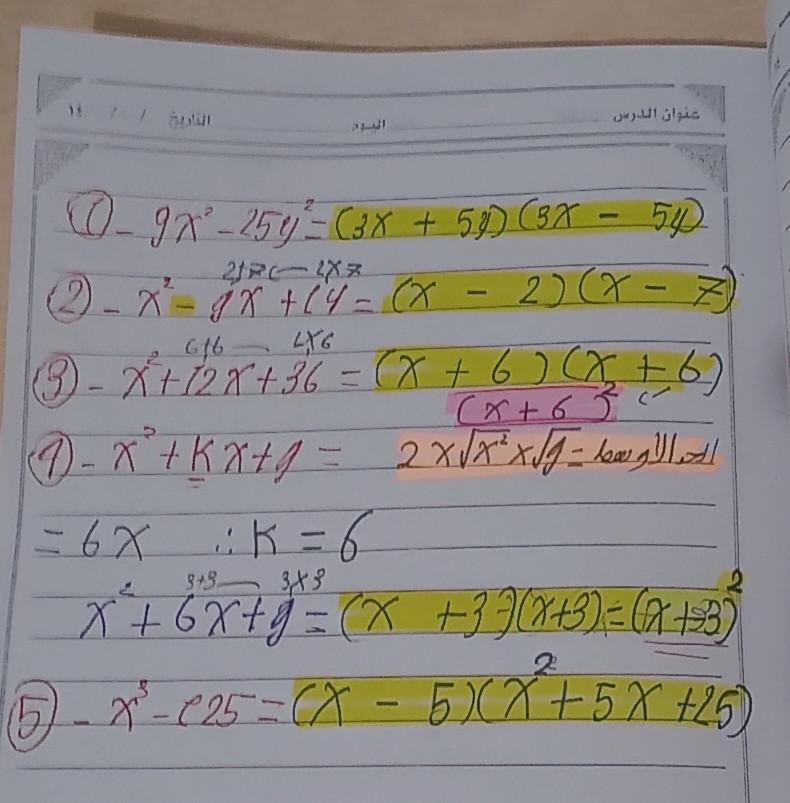 عنوان الدرس اليوم التاريخ / / ١٤
① - 9x² - 25y² = (3x + 5y)(3x - 5y)
2+7 2×7
② - x² - 9x + 14 = (x - 2)(x - 7)
6+6 6×6
③ - x² + 12x + 36 = (x + 6)(x + 6)
(x + 6)²
④ - x² + Kx + 9 = 2 × √x² × √9 = الحد الأوسط
= 6x ∴ K = 6
3+3 3×3
x² + 6x + 9 = (x + 3)(x+3) = (x+3)²
⑤ - x³ - 125 = (x - 5)(x² + 5x + 25)